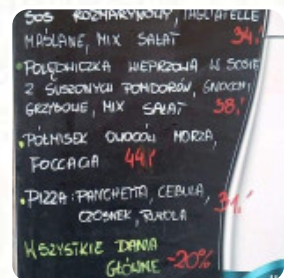 SOS ROZMARYNOWY, TAGLIATELLE
MAŚLANE, MIX SAŁAT 34,-
POLĘDWICZKA WIEPRZOWA W SOSIE
Z SUSZONYCH POMIDORÓW, GNOCCHI
GRZYBOWE, MIX SAŁAT 38,-
PÓŁMISEK OWOCÓW MORZA,
FOCCACIA 44,-
PIZZA: PANCHETTA, CEBULA, 31,-
CZOSNEK, RUKOLA
WSZYSTKIE DANIA
GŁÓWNE -20%